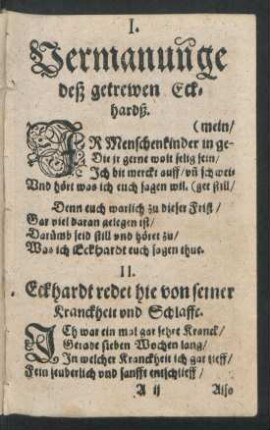 I.
Vermanunge
deß getrewen Eck-
hardß.
(mein/
IR Menschenkinder in ge-
Die jr gerne wolt selig sein/
Ich bit merckt auff/ vñ schwei-
Vnd hört was ich euch sagen wil. (get still/
Denn euch warlich zu dieser Frist/
Gar viel daran gelegen ist/
Darůmb seid still vnd höret zu/
Was ich Eckhardt euch sagen thue.
II.
Eckhardt redet hie von seiner
Kranckheit vnd Schlaffe.
ICh war ein mal gar sehre Kranck/
Gerade sieben Wochen lang/
In welcher Kranckheit ich gar tieff/
Fein seuberlich vnd sanffte entschlieff/
A ij Also